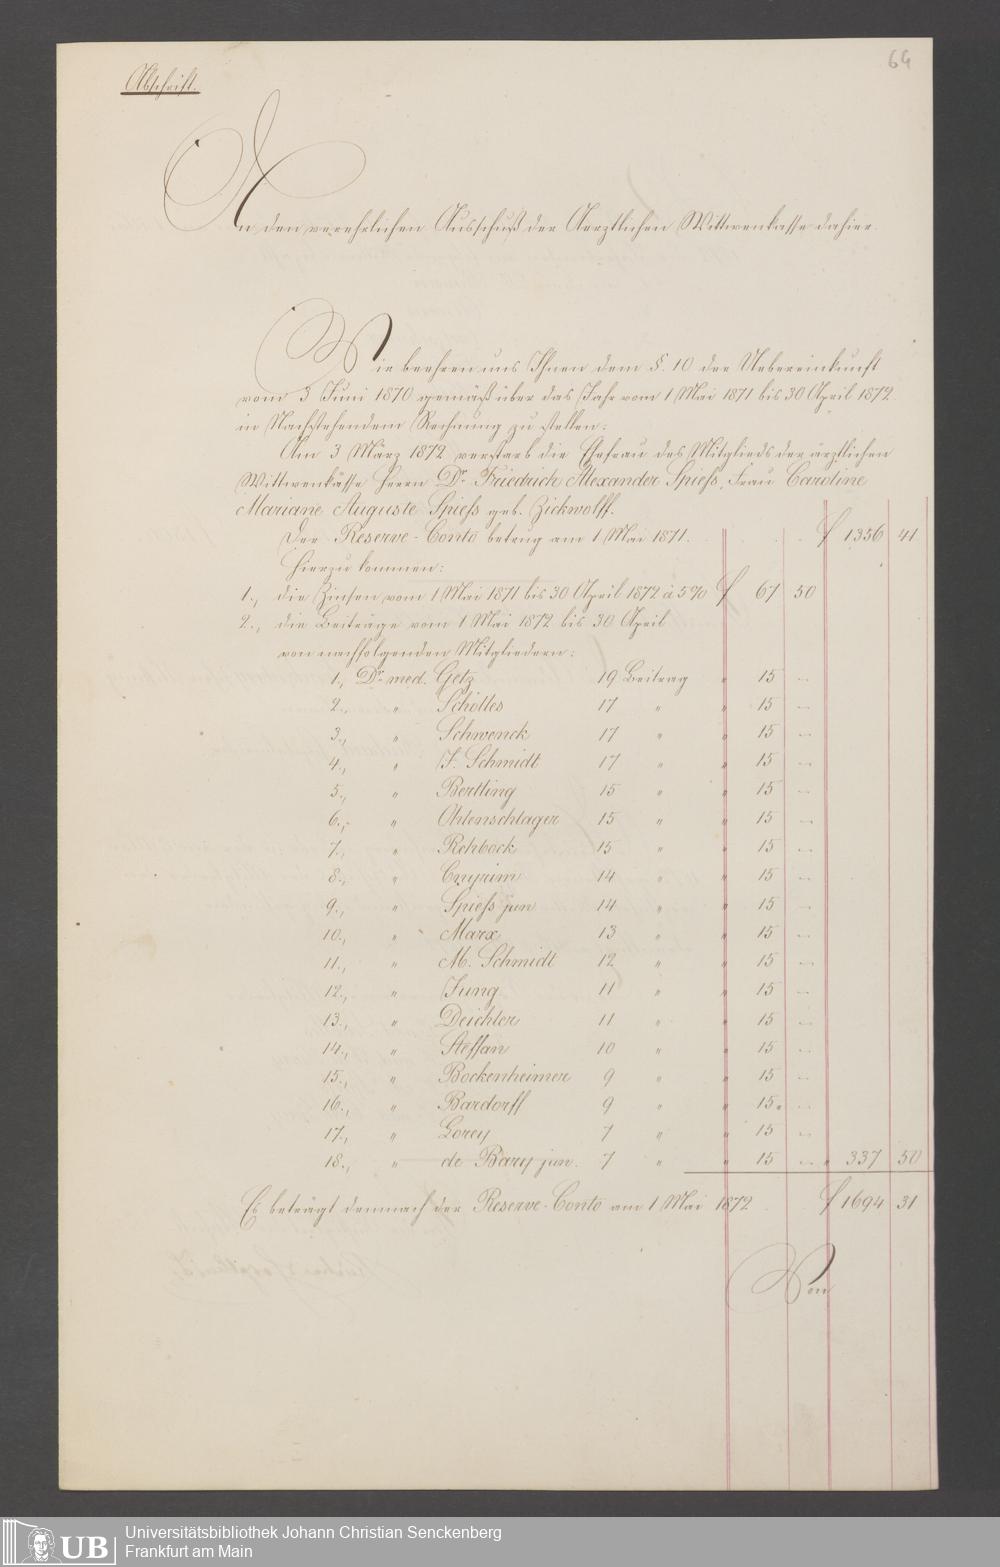 64
Abschrift.
An den verehrlichen Ausschuß der Aerztlichen Wittwenkasse dahier.
Wir beehren uns Ihnen dem §. 10 der Uebereinkunft
vom 3 Juni 1870 gemäß über das Jahr vom 1 Mai 1871 bis 30 April 1872.
in Nachstehendem Rechnung zu stellen:
Am 3 März 1872 verstarb die Ehefrau des Mitglieds der ärztlichen
Wittwenkasse Herrn Dr. Friedrich Alexander Spiess, Frau Caroline
Mariane Auguste Spiess geb. Zickwolff.
Der Reserve-Conto betrug am 1 Mai 1871. f 1356 41
Hierzu kommen:
1., die Zinsen vom 1 Mai 1871 bis 30 April 1872 à 5% f 67 50
2., die Beiträge vom 1 Mai 1872 bis 30 April
von nachfolgenden Mitgliedern:
1., Dr. med. Getz 19 Beitrag " 15 -
2., " Schölles 17 " " 15 -
3., " Schwenck 17 " " 15 -
4., " J. Schmidt 17 " " 15 -
5., " Bertling 15 " " 15 -
6., " Ohlenschlager 15 " " 15 -
7., " Rehbock 15 " " 15 -
8., " Cnyrim 14 " " 15 -
9., " Spiess jun 14 " " 15 -
10., " Marx 13 " " 15 -
11., " M. Schmidt 12 " " 15 -
12., " Jung 11 " " 15 -
13., " Deichler 11 " " 15 -
14., " Steffan 10 " " 15 -
15., " Bockenheimer 9 " " 15 -
16., " Bardorff 9 " " 15 -
17., " Lorey 7 " " 15 -
18., " de Bary jun. 7 " " 15 - " 337 50
Es beträgt demnach der Reserve-Conto am 1 Mai 1872 f 1694 31
Von
UB
Universitätsbibliothek Johann Christian Senckenberg
Frankfurt am Main